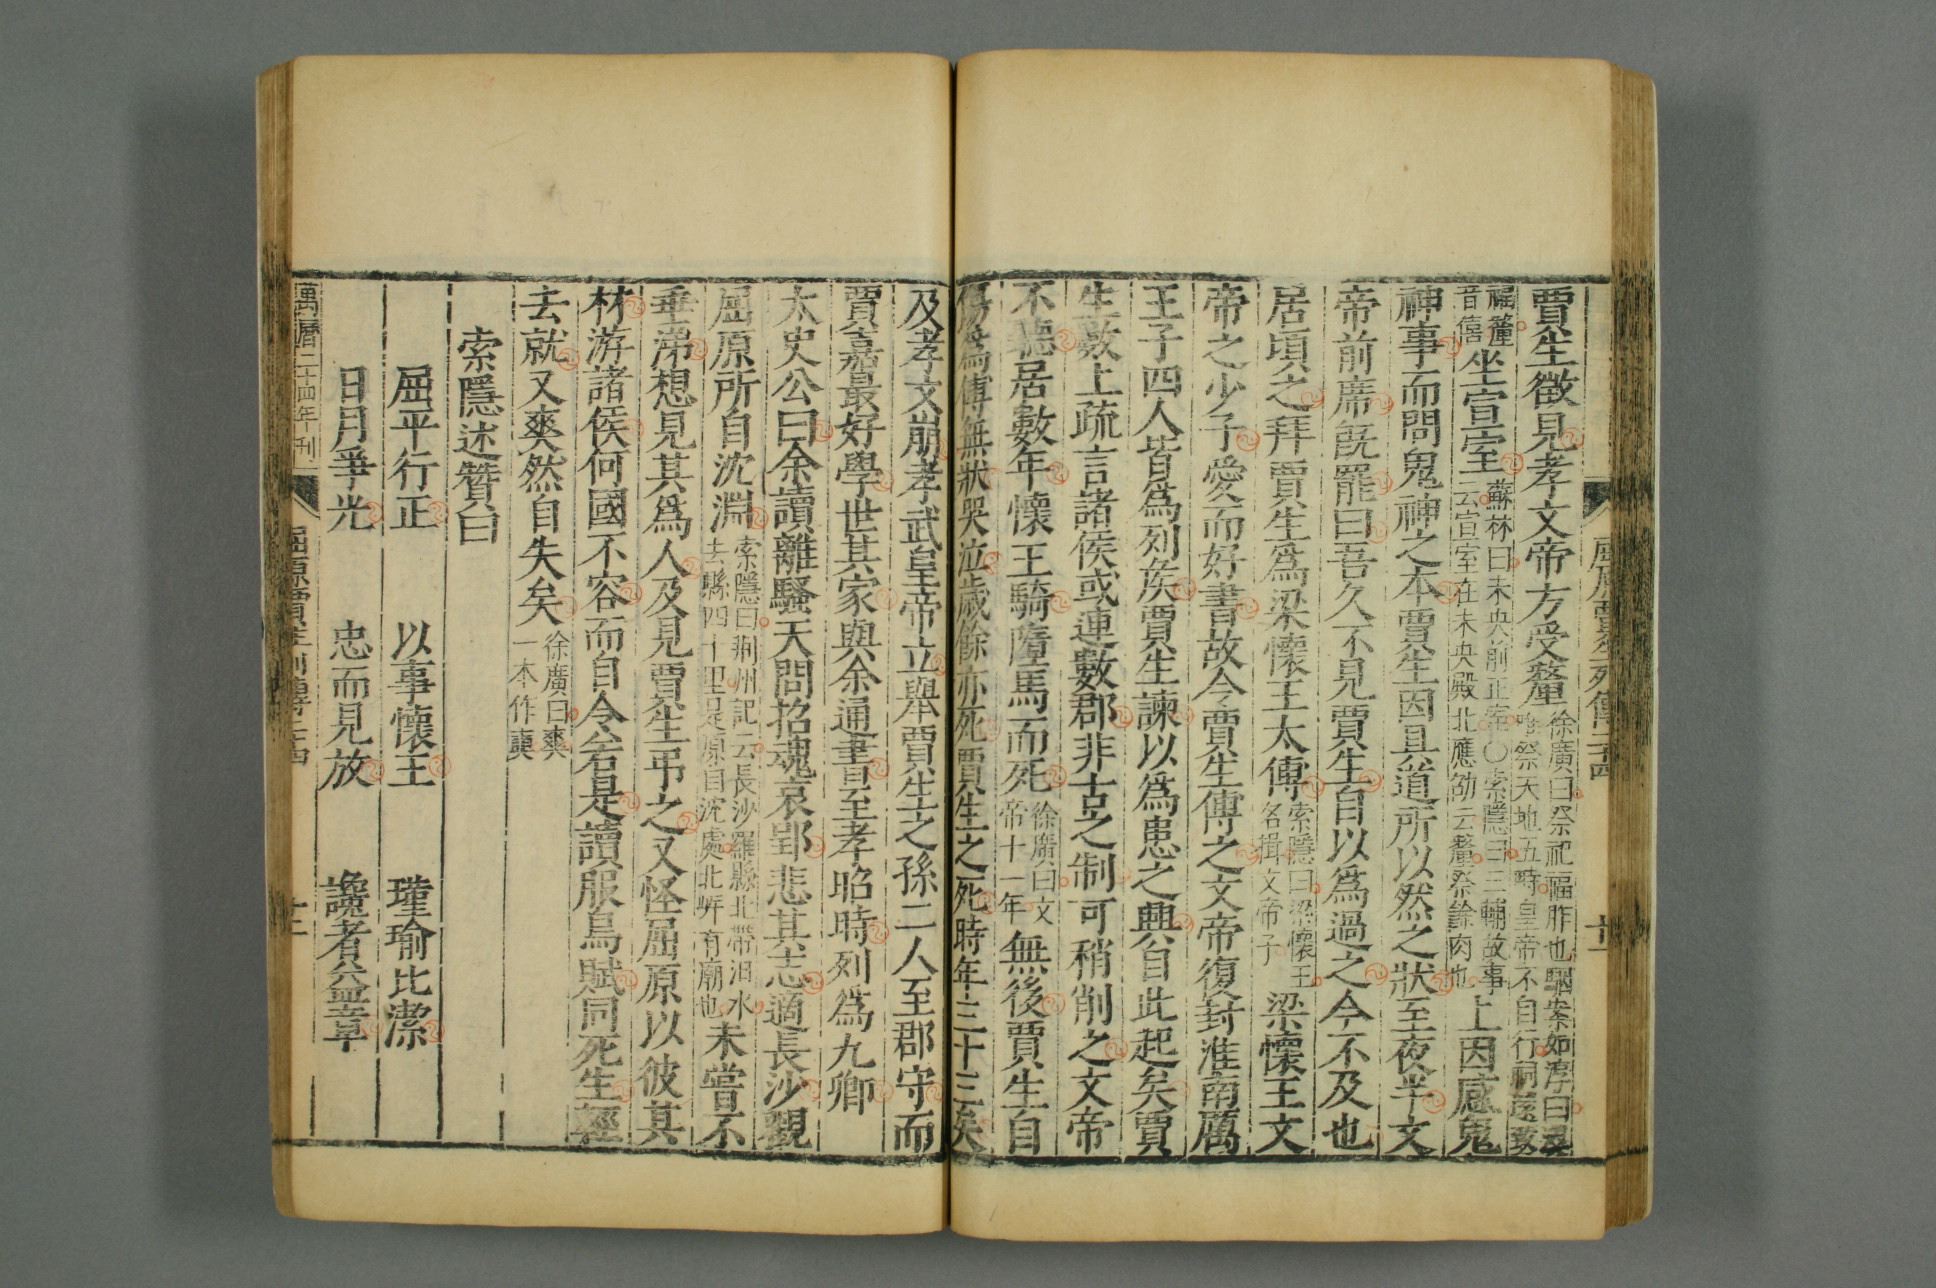 賈生徵見孝文帝方受釐徐廣曰祭祀福胙也駰案如淳曰漢唯祭天地五畤皇帝不自行祠還致
福釐音僖坐宣室蘇林曰未央前正室○索隱曰三輔故事云宣室在未央殿北應劭云釐祭餘肉也上因感鬼
神事而問鬼神之本賈生因具道所以然之狀至夜半文
帝前席旣罷曰吾久不見賈生自以爲過之今不及也
居頃之拜賈生爲梁懷王太傅索隱曰梁懷王名揖文帝子梁懷王文
帝之少子愛而好書故令賈生傅之文帝復封淮南厲
王子四人皆爲列矦賈生諫以爲患之興自此起矣賈
生數上疏言諸侯或連數郡非古之制可稍削之文帝
不聽居數年懷王騎墮馬而死徐廣曰文帝十一年無後賈生自
傷爲傅無狀哭泣歲餘亦死賈生之死時年三十三矣
屈原賈生列傳二十四
廿一
及孝文崩孝武皇帝立舉賈生之孫二人至郡守而
賈嘉最好學世其家與余通書至孝昭時列爲九卿
太史公曰余讀離騷天問招魂哀郢悲其志適長沙觀
屈原所自沈淵索隱曰荆州記云長沙羅縣北帶汨水去縣四十里是原自沈處北岸有廟也未嘗不
垂涕想見其爲人及見賈生弔之又怪屈原以彼其
材游諸侯何國不容而自令若是讀服鳥賦同死生輕
去就又爽然自失矣徐廣曰爽一本作奭
索隱述贊曰
屈平行正 以事懷王 瑾瑜比潔
日月爭光 忠而見放 讒者益章
萬曆二十四年刊
屈原賈生列傳二十四
廿二